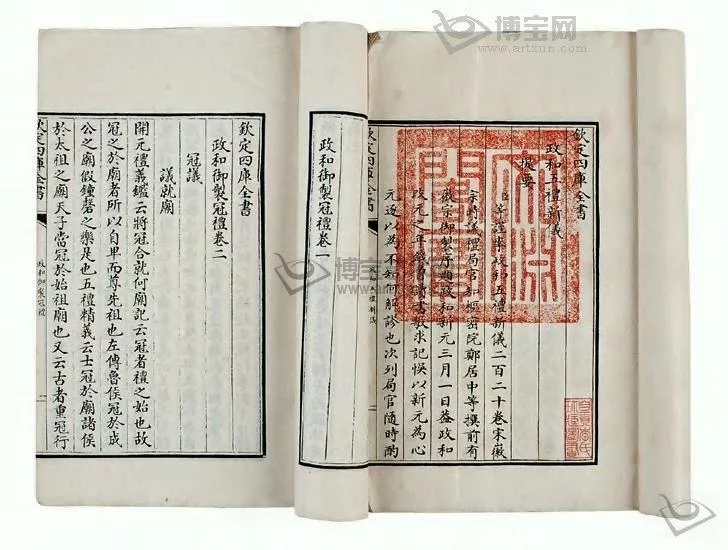 欽定四庫全書
政和五禮新儀
提要
臣等謹案政和五禮新儀二百二十卷宋徽
宗時議禮局官知樞密院鄭居中等撰前有
徽宗御製序題政和新元三月一日蓋政和
改元之年錢曾讀書敏求記悞以新元為心
元遂以為不如何解謬也次列局官隨時酌
政和御製冠禮卷一
欽定四庫全書
政和御製冠禮卷二
冠議
議就廟
開元禮義鑑云將冠合就何廟記云冠者禮之始也故
冠之於廟者所以自卑而尊先祖也左傳魯侯冠於成
公之廟假鐘磬之樂是也五禮精義云士冠於廟諸侯
於太祖之廟天子當冠於始祖廟也又云古者重冠行
欽定四庫全書
政和御製冠禮
博宝网
www.artxun.com
博宝网